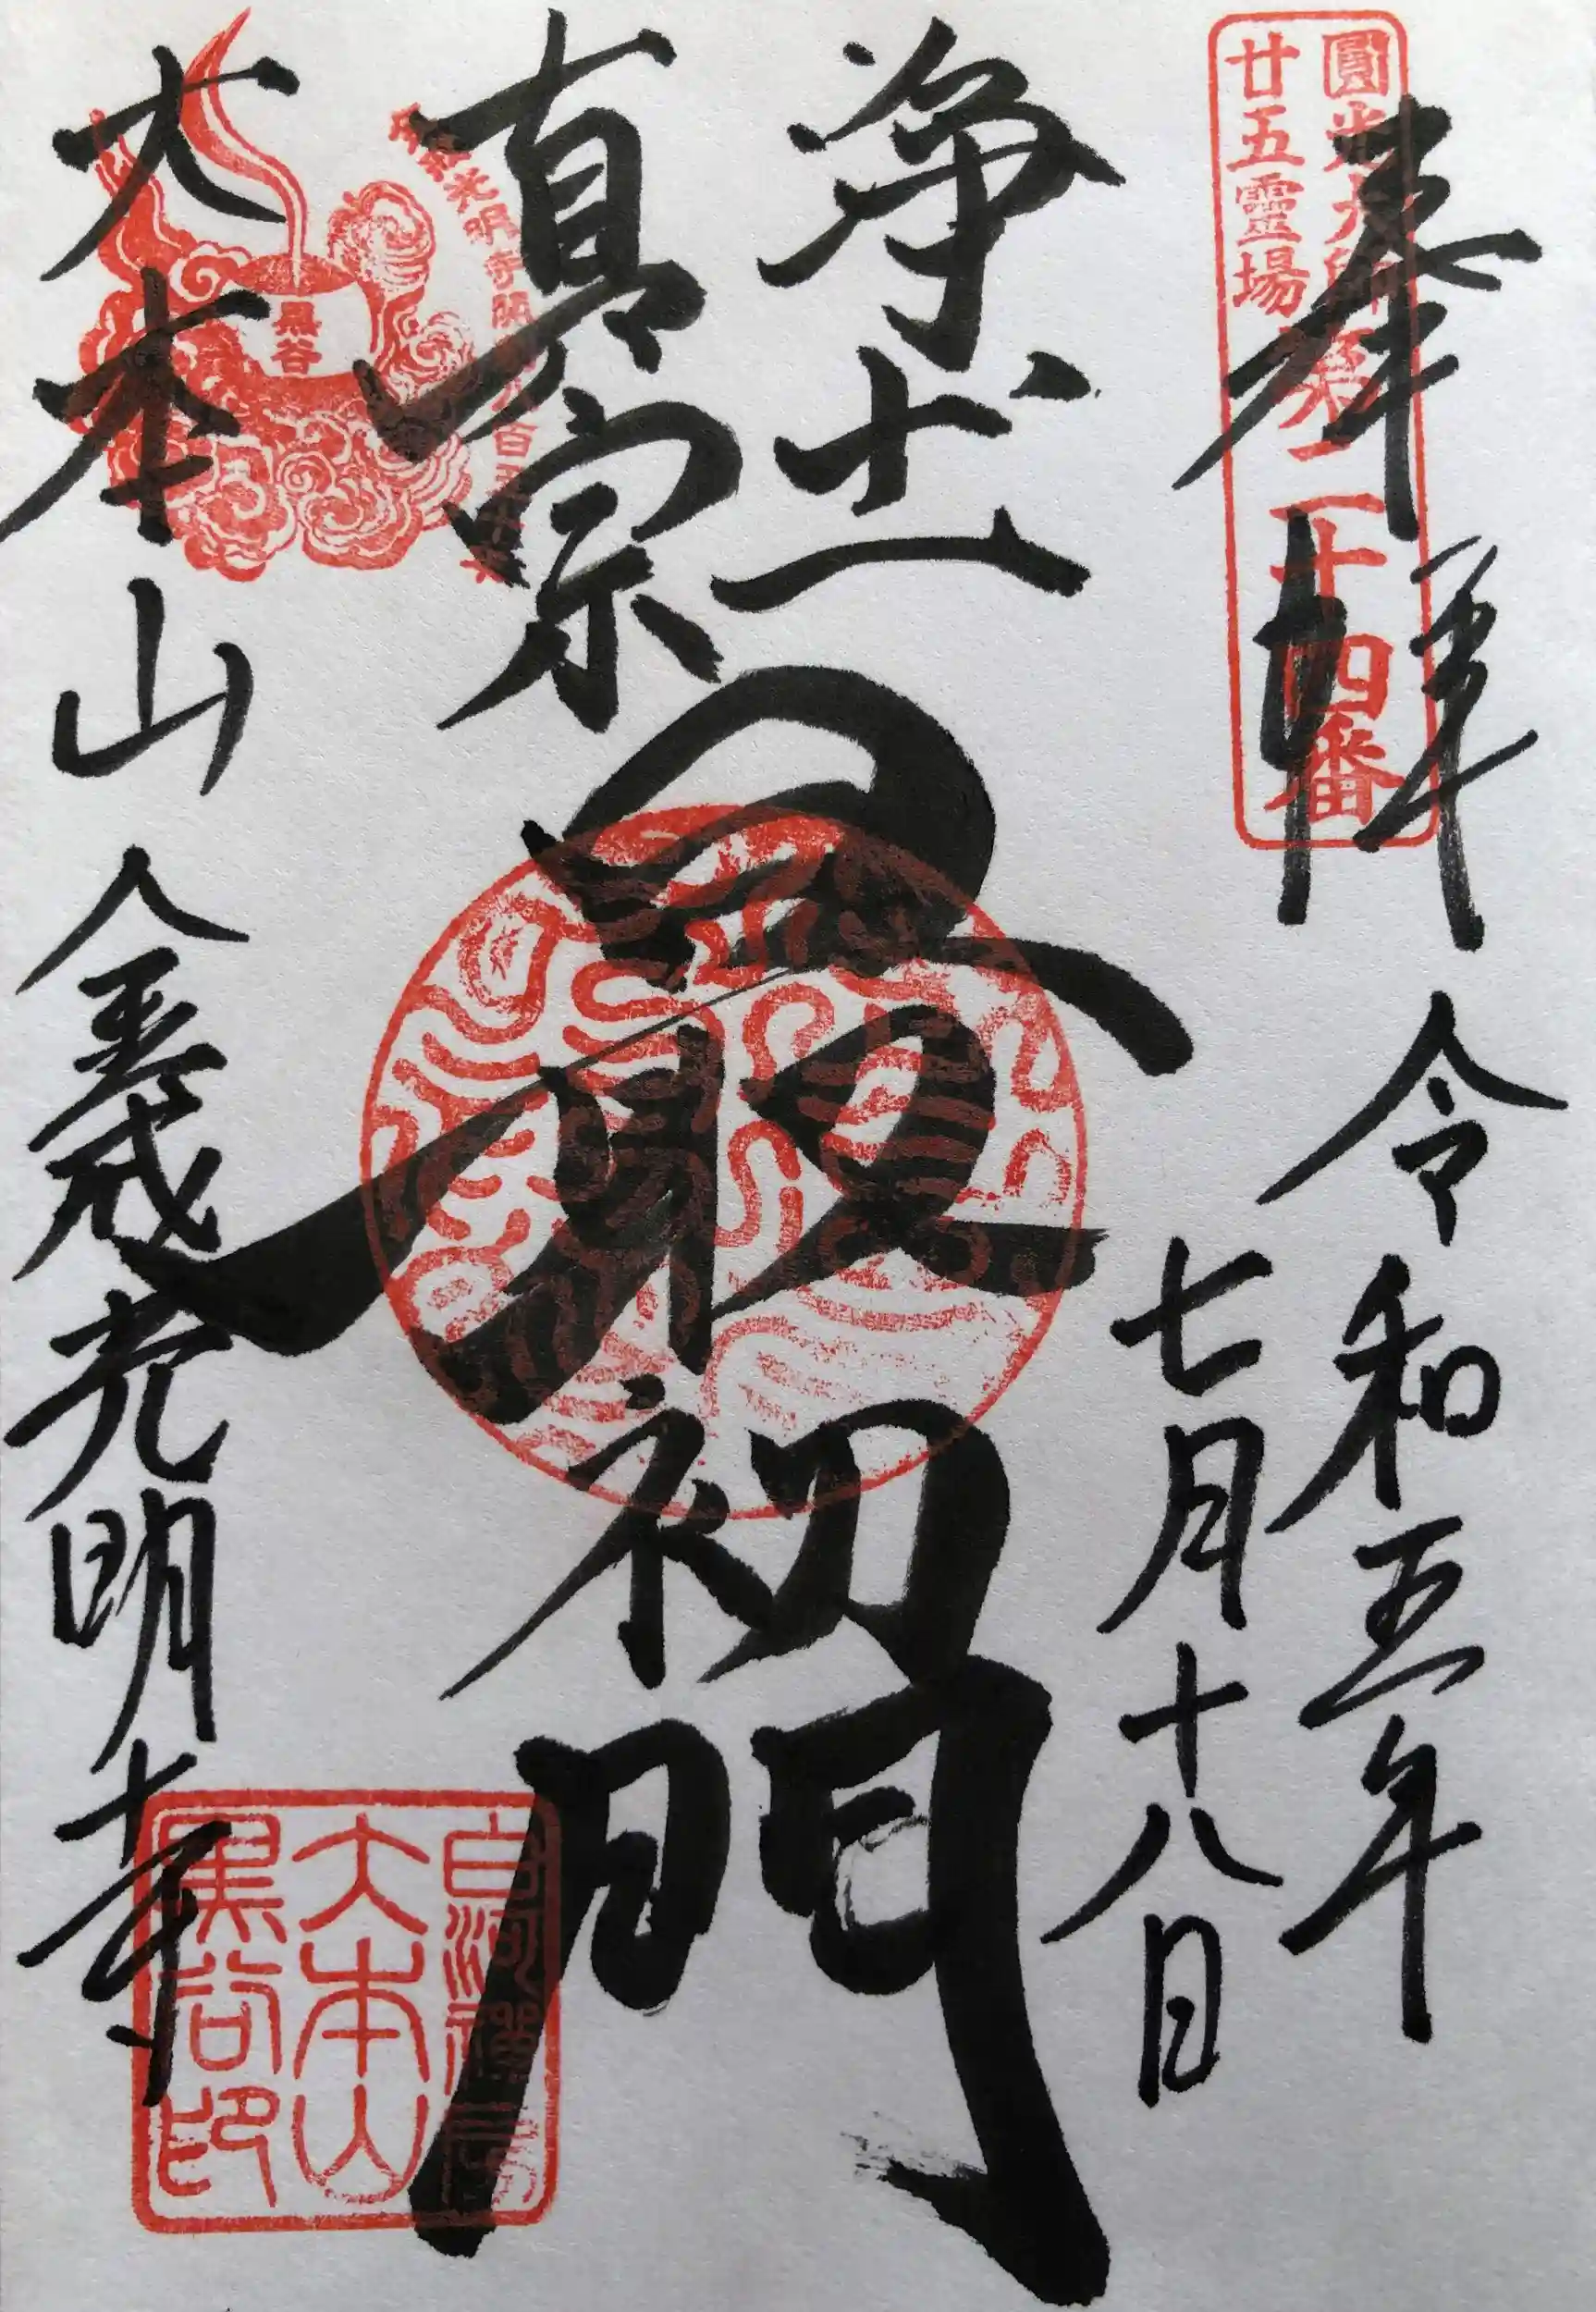 奉拝
圓光大師
廿五霊場
第二十四番
令和五年
七月十八日
浄土
真宗
最初門
大本山 金戒光明寺
黒谷
大本山
黒谷印